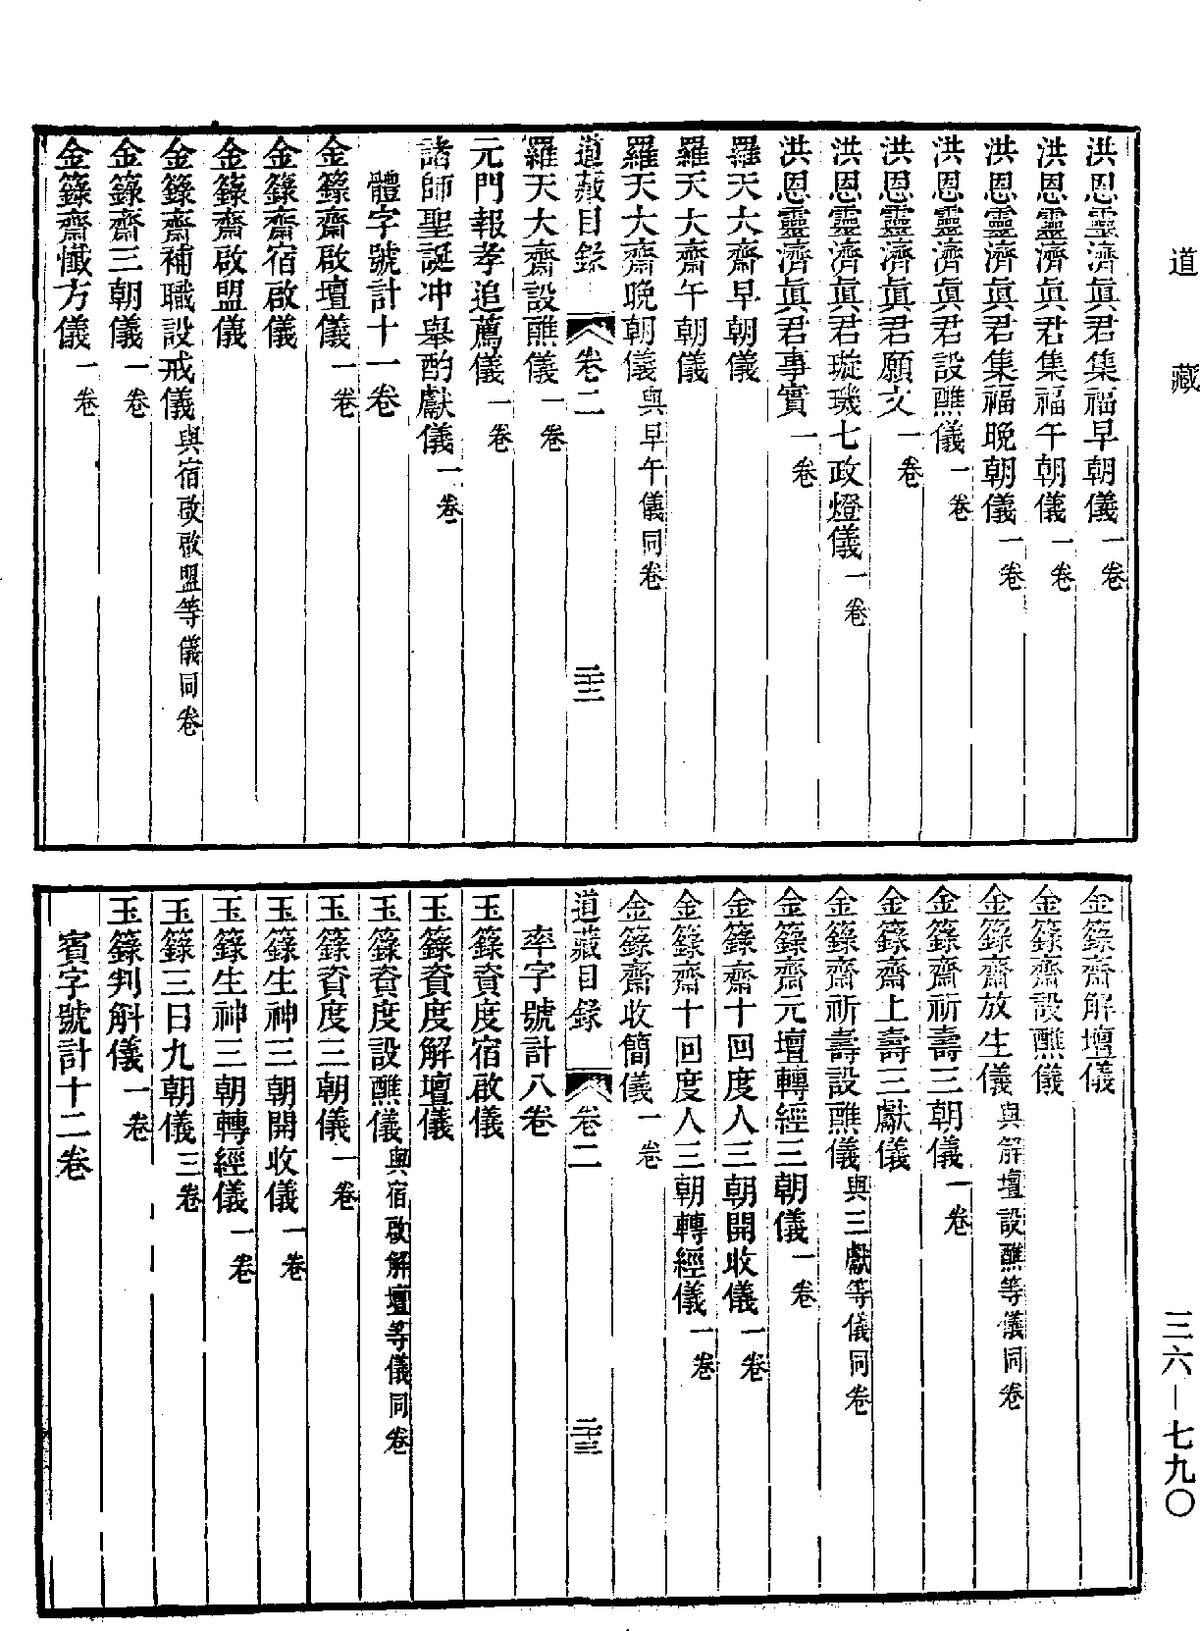 道藏
洪恩靈濟眞君集福早朝儀一卷
洪恩靈濟眞君集福午朝儀一卷
洪恩靈濟眞君集福晚朝儀一卷
洪恩靈濟眞君設醮儀一卷
洪恩靈濟眞君願文一卷
洪恩靈濟眞君璇璣七政燈儀一卷
洪恩靈濟眞君事實一卷
羅天大齋早朝儀
羅天大齋午朝儀
羅天大齋晚朝儀與早午儀同卷
道藏目錄 卷二 二十二
羅天大齋設醮儀一卷
元門報孝追薦儀一卷
諸師聖誕冲舉酌獻儀一卷
體字號計十一卷
金籙齋啟壇儀一卷
金籙齋宿啟儀
金籙齋啟盟儀
金籙齋補職設戒儀與宿啟啟盟等儀同卷
金籙齋三朝儀一卷
金籙齋懺方儀一卷
金籙齋解壇儀
金籙齋設醮儀
金籙齋放生儀與解壇設醮等儀同卷
金籙齋祈壽三朝儀一卷
金籙齋上壽三獻儀
金籙齋祈壽設醮儀與三獻等儀同卷
金籙齋元壇轉經三朝儀一卷
金籙齋十回度人三朝開收儀一卷
金籙齋十回度人三朝轉經儀一卷
金籙齋收簡儀一卷
道藏目錄 卷二 二十三
率字號計八卷
玉籙資度宿啟儀
玉籙資度解壇儀
玉籙資度設醮儀與宿啟解壇等儀同卷
玉籙資度三朝儀一卷
玉籙生神三朝開收儀一卷
玉籙生神三朝轉經儀一卷
玉籙三日九朝儀三卷
玉籙判斛儀一卷
賓字號計十二卷
三六—七九〇